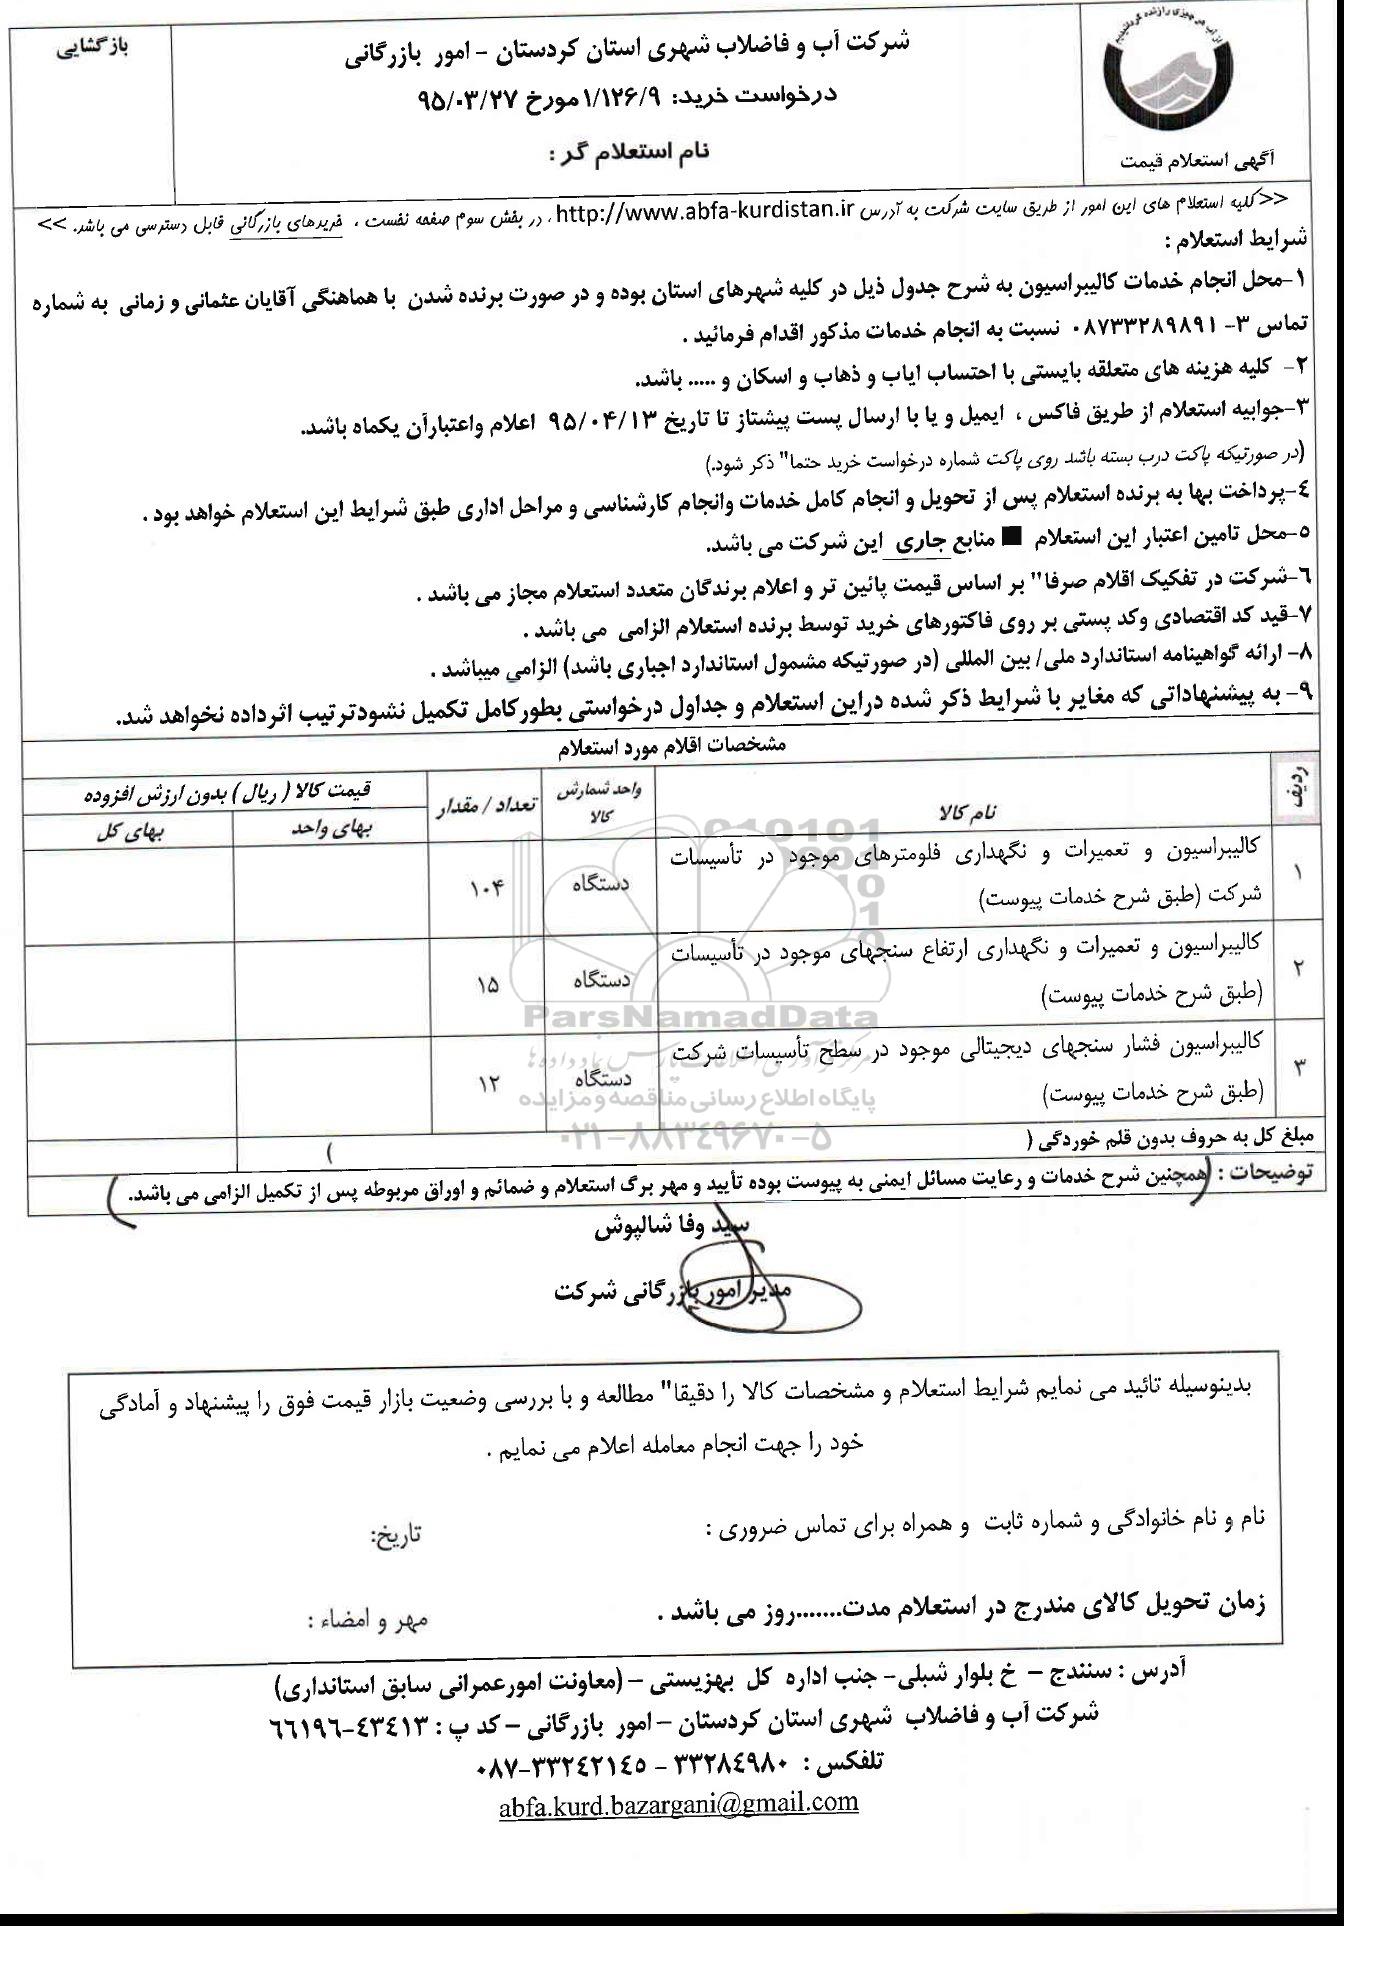 بازگشایی
شرکت آب و فاضلاب شهری استان کردستان – امور بازرگانی
درخواست خرید: ۱/۱۲۶/۹ مورخ ۹۵/۰۳/۲۷
نام استعلام گر :
آگهی استعلام قیمت
<<کلیه استعلام های این امور از طریق سایت شرکت به آدرس http://www.abfa-kurdistan.ir، در بخش سوم صفحه نخست ، خریدهای بازرگانی قابل دسترسی می باشد. >>
شرایط استعلام :
۱–محل انجام خدمات کالیبراسیون به شرح جدول ذیل در کلیه شهرهای استان بوده و در صورت برنده شدن با هماهنگی آقایان عثمانی و زمانی به شماره
تماس ۳- ۰۸۷۳۳۲۸۹۸۹۱ نسبت به انجام خدمات مذکور اقدام فرمائید .
۲- کلیه هزینه های متعلقه بایستی با احتساب ایاب و ذهاب و اسکان و ..... باشد.
۳–جوابیه استعلام از طریق فاکس ، ایمیل و یا با ارسال پست پیشتاز تا تاریخ ۹۵/۰۴/۱۳ اعلام واعتبارآن یکماه باشد.
(در صورتیکه پاکت درب بسته باشد روی پاکت شماره درخواست خرید حتما" ذکر شود.)
٤–پرداخت بها به برنده استعلام پس از تحویل و انجام کامل خدمات وانجام کارشناسی و مراحل اداری طبق شرایط این استعلام خواهد بود .
۵–محل تامین اعتبار این استعلام ■ منابع جاری این شرکت می باشد.
٦–شرکت در تفکیک اقلام صرفا" بر اساس قیمت پائین تر و اعلام برندگان متعدد استعلام مجاز می باشد .
۷–قید کد اقتصادی وکد پستی بر روی فاکتورهای خرید توسط برنده استعلام الزامی می باشد .
۸– ارائه گواهینامه استاندارد ملی/ بین المللی (در صورتیکه مشمول استاندارد اجباری باشد) الزامی میباشد .
۹– به پیشنهاداتی که مغایر با شرایط ذکر شده دراین استعلام و جداول درخواستی بطورکامل تکمیل نشودترتیب اثرداده نخواهد شد.
مشخصات اقلام مورد استعلام
ردیف
نام کالا
واحد شمارش کالا
تعداد / مقدار
قیمت کالا ( ریال ) بدون ارزش افزوده
بهای واحد
بهای کل
۱
کالیبراسیون و تعمیرات و نگهداری فلومترهای موجود در تأسیسات
شرکت (طبق شرح خدمات پیوست)
دستگاه
۱۰۴
۲
کالیبراسیون و تعمیرات و نگهداری ارتفاع سنجهای موجود در تأسیسات
(طبق شرح خدمات پیوست)
دستگاه
۱۵
۳
کالیبراسیون فشار سنجهای دیجیتالی موجود در سطح تأسیسات شرکت
(طبق شرح خدمات پیوست)
دستگاه
۱۲
ParsNamadData
پایگاه اطلاع رسانی مناقصه و مزایده
۰۲۱-۸۸۳۴۹۶۷۰-۵
مبلغ کل به حروف بدون قلم خوردگی ( )
توضیحات : (همچنین شرح خدمات و رعایت مسائل ایمنی به پیوست بوده تأیید و مهر برگ استعلام و ضمائم و اوراق مربوطه پس از تکمیل الزامی می باشد.)
سید وفا شالپوش
مدیر امور بازرگانی شرکت
بدینوسیله تائید می نمایم شرایط استعلام و مشخصات کالا را دقیقا" مطالعه و با بررسی وضعیت بازار قیمت فوق را پیشنهاد و آمادگی
خود را جهت انجام معامله اعلام می نمایم .
نام و نام خانوادگی و شماره ثابت و همراه برای تماس ضروری :
تاریخ:
زمان تحویل کالای مندرج در استعلام مدت.......روز می باشد .
مهر و امضاء :
آدرس : سنندج – خ بلوار شبلی– جنب اداره کل بهزیستی – (معاونت امورعمرانی سابق استانداری)
شرکت آب و فاضلاب شهری استان کردستان – امور بازرگانی – کد پ : ٤٣٤١٣-٦٦١٩٦
تلفکس : ۳۳۲۸٤۹۸۰ - ۳۳۲٤۲۱٤٥-۰۸۷
abfa.kurd.bazargani@gmail.com